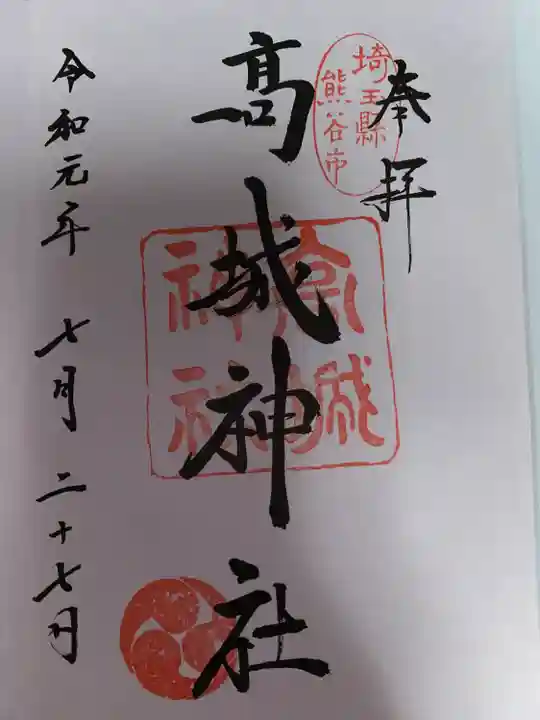 奉拝
埼玉縣
熊谷市
髙城神社
髙城
神社
令和元年 七月 二十七日